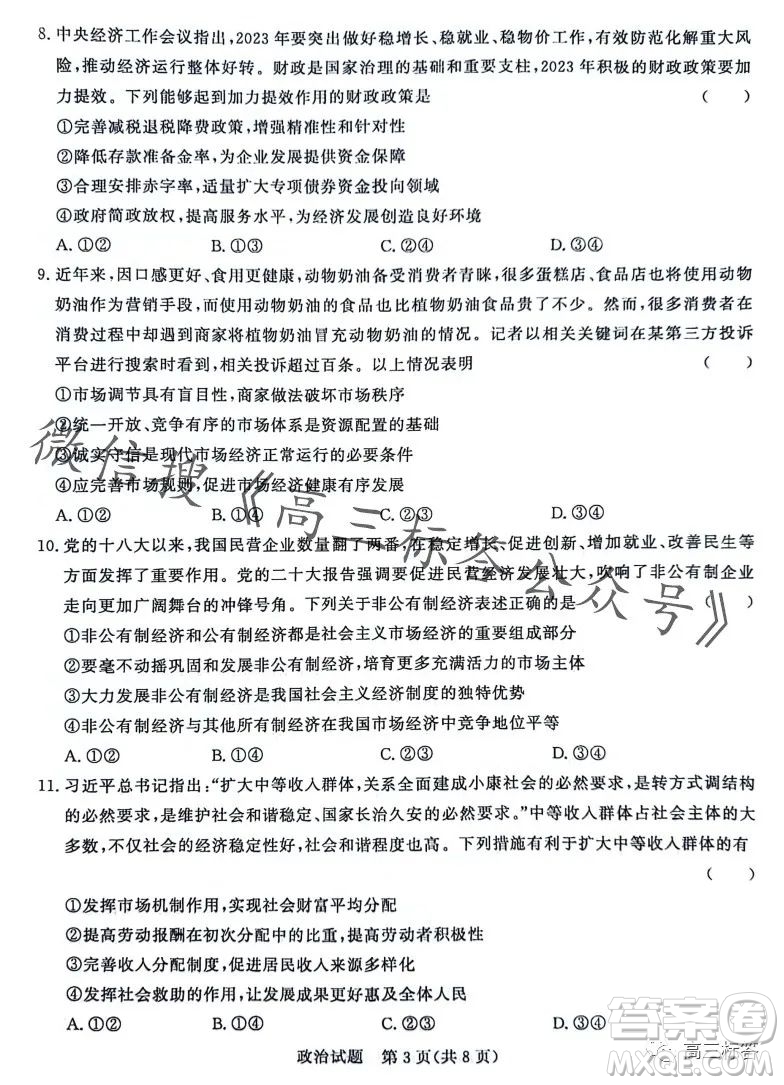 8. 中央经济工作会议指出，2023年要突出做好稳增长、稳就业、稳物价工作，有效防范化解重大风
险，推动经济运行整体好转。财政是国家治理的基础和重要支柱，2023年积极的财政政策要加
力提效。下列能够起到加力提效作用的财政政策是 （ ）
①完善减税退税降费政策，增强精准性和针对性
②降低存款准备金率，为企业发展提供资金保障
③合理安排赤字率，适量扩大专项债券资金投向领域
④政府简政放权，提高服务水平，为经济发展创造良好环境
A. ①② B. ①③ C. ②④ D. ③④
9. 近年来，因口感更好、食用更健康，动物奶油备受消费者青睐，很多蛋糕店、食品店也将使用动物
奶油作为营销手段，而使用动物奶油的食品也比植物奶油食品贵了不少。然而，很多消费者在
消费过程中却遇到商家将植物奶油冒充动物奶油的情况。记者以相关关键词在某第三方投诉
平台进行搜索时看到，相关投诉超过百条。以上情况表明 （ ）
①市场调节具有盲目性，商家做法破坏市场秩序
②统一开放、竞争有序的市场体系是资源配置的基础
③诚实守信是现代市场经济正常运行的必要条件
④应完善市场规则，促进市场经济健康有序发展
A. ①② B. ①④ C. ②③ D. ③④
微信搜《高三标答公众号》
10. 党的十八大以来，我国民营企业数量翻了两番，在稳定增长、促进创新、增加就业、改善民生等
方面发挥了重要作用。党的二十大报告强调要促进民营经济发展壮大，吹响了非公有制企业
走向更加广阔舞台的冲锋号角。下列关于非公有制经济表述正确的是 （ ）
①非公有制经济和公有制经济都是社会主义市场经济的重要组成部分
②要毫不动摇巩固和发展非公有制经济，培育更多充满活力的市场主体
③大力发展非公有制经济是我国社会主义经济制度的独特优势
④非公有制经济与其他所有制经济在我国市场经济中竞争地位平等
A. ①② B. ①④ C. ②③ D. ③④
11. 习近平总书记指出：“扩大中等收入群体，关系全面建成小康社会的必然要求，是转方式调结构
的必然要求，是维护社会和谐稳定、国家长治久安的必然要求。”中等收入群体占社会主体的大
多数，不仅社会的经济稳定性好，社会和谐程度也高。下列措施有利于扩大中等收入群体的有
（ ）
①发挥市场机制作用，实现社会财富平均分配
②提高劳动报酬在初次分配中的比重，提高劳动者积极性
③完善收入分配制度，促进居民收入来源多样化
④发挥社会救助的作用，让发展成果更好惠及全体人民
A. ①② B. ①④ C. ②③ D. ③④
政治试题 第3页（共8页）
高三标答
答案卷
MXQE.COM